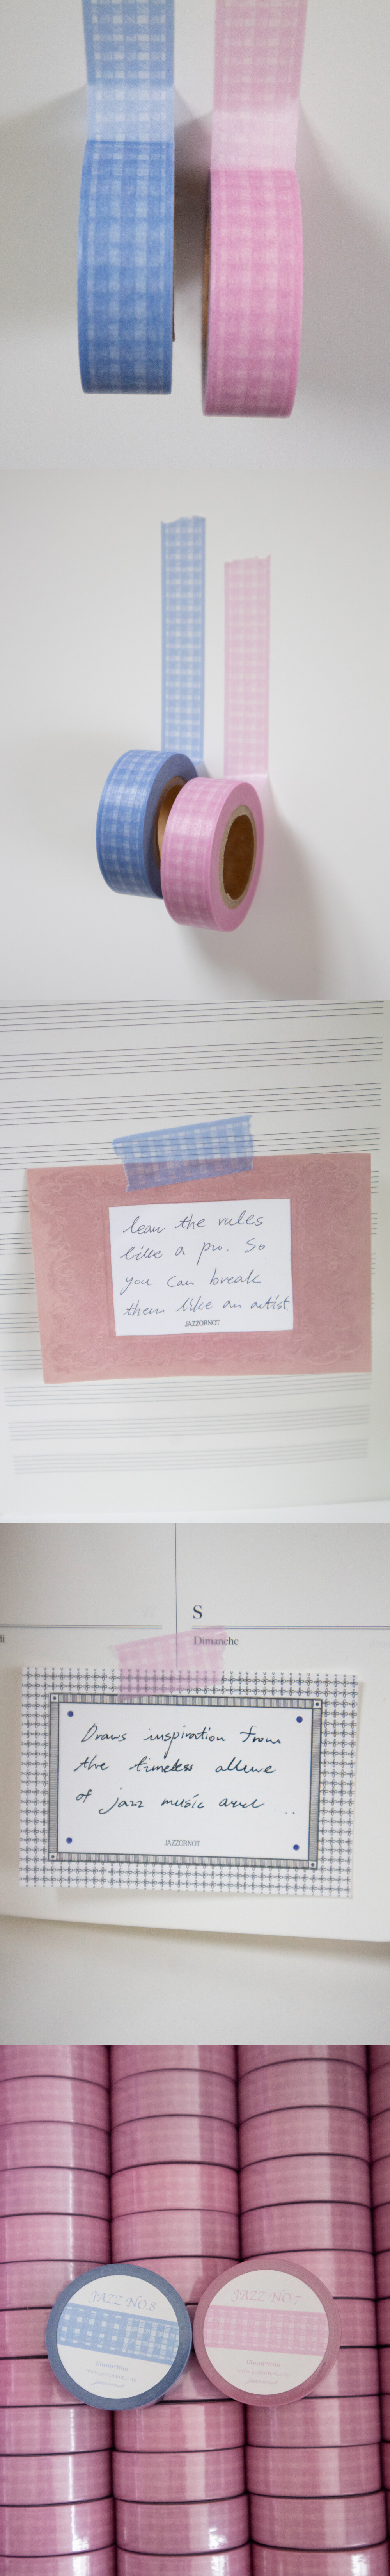 lean the rules
like a pro. So
you can break
them like an artist.
JAZZORNOT
S
Dimanche
Draws inspiration from
the timeless allure
of jazz music and ...
JAZZORNOT
JAZZ NO.8
JAZZ NO.7